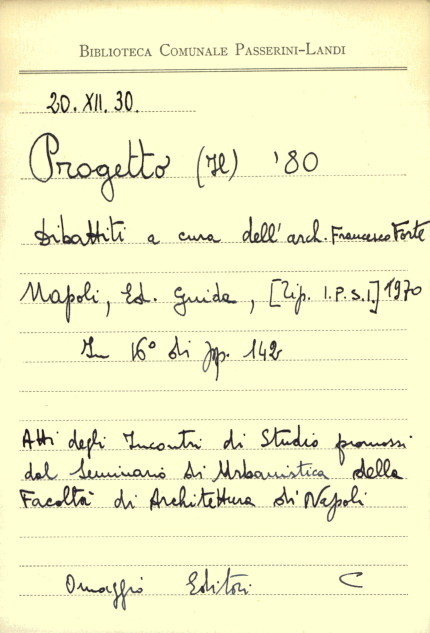 BIBLIOTECA COMUNALE PASSERINI-LANDI
20. XII. 30.
Progetto (Il) '80
Dibattiti a cura dell'arch. Francesco Forte
Napoli, Ed. Guida, [Tip. I.P.S.I.] 1970
In 16° di pp. 142
Atti degli Incontri di Studio promossi
dal Seminario di Urbanistica della
Facoltà di Architettura di Napoli
Omaggio Editori C